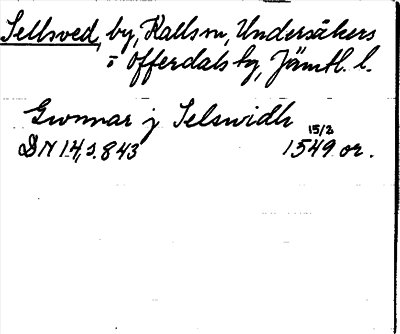 Sellsved, by, Kallsn, Undersåkers
o Offerdals tg, Jämtl. l.
Gwnnar j Selswidh
DN 14, s. 843 15/2 1549 or.